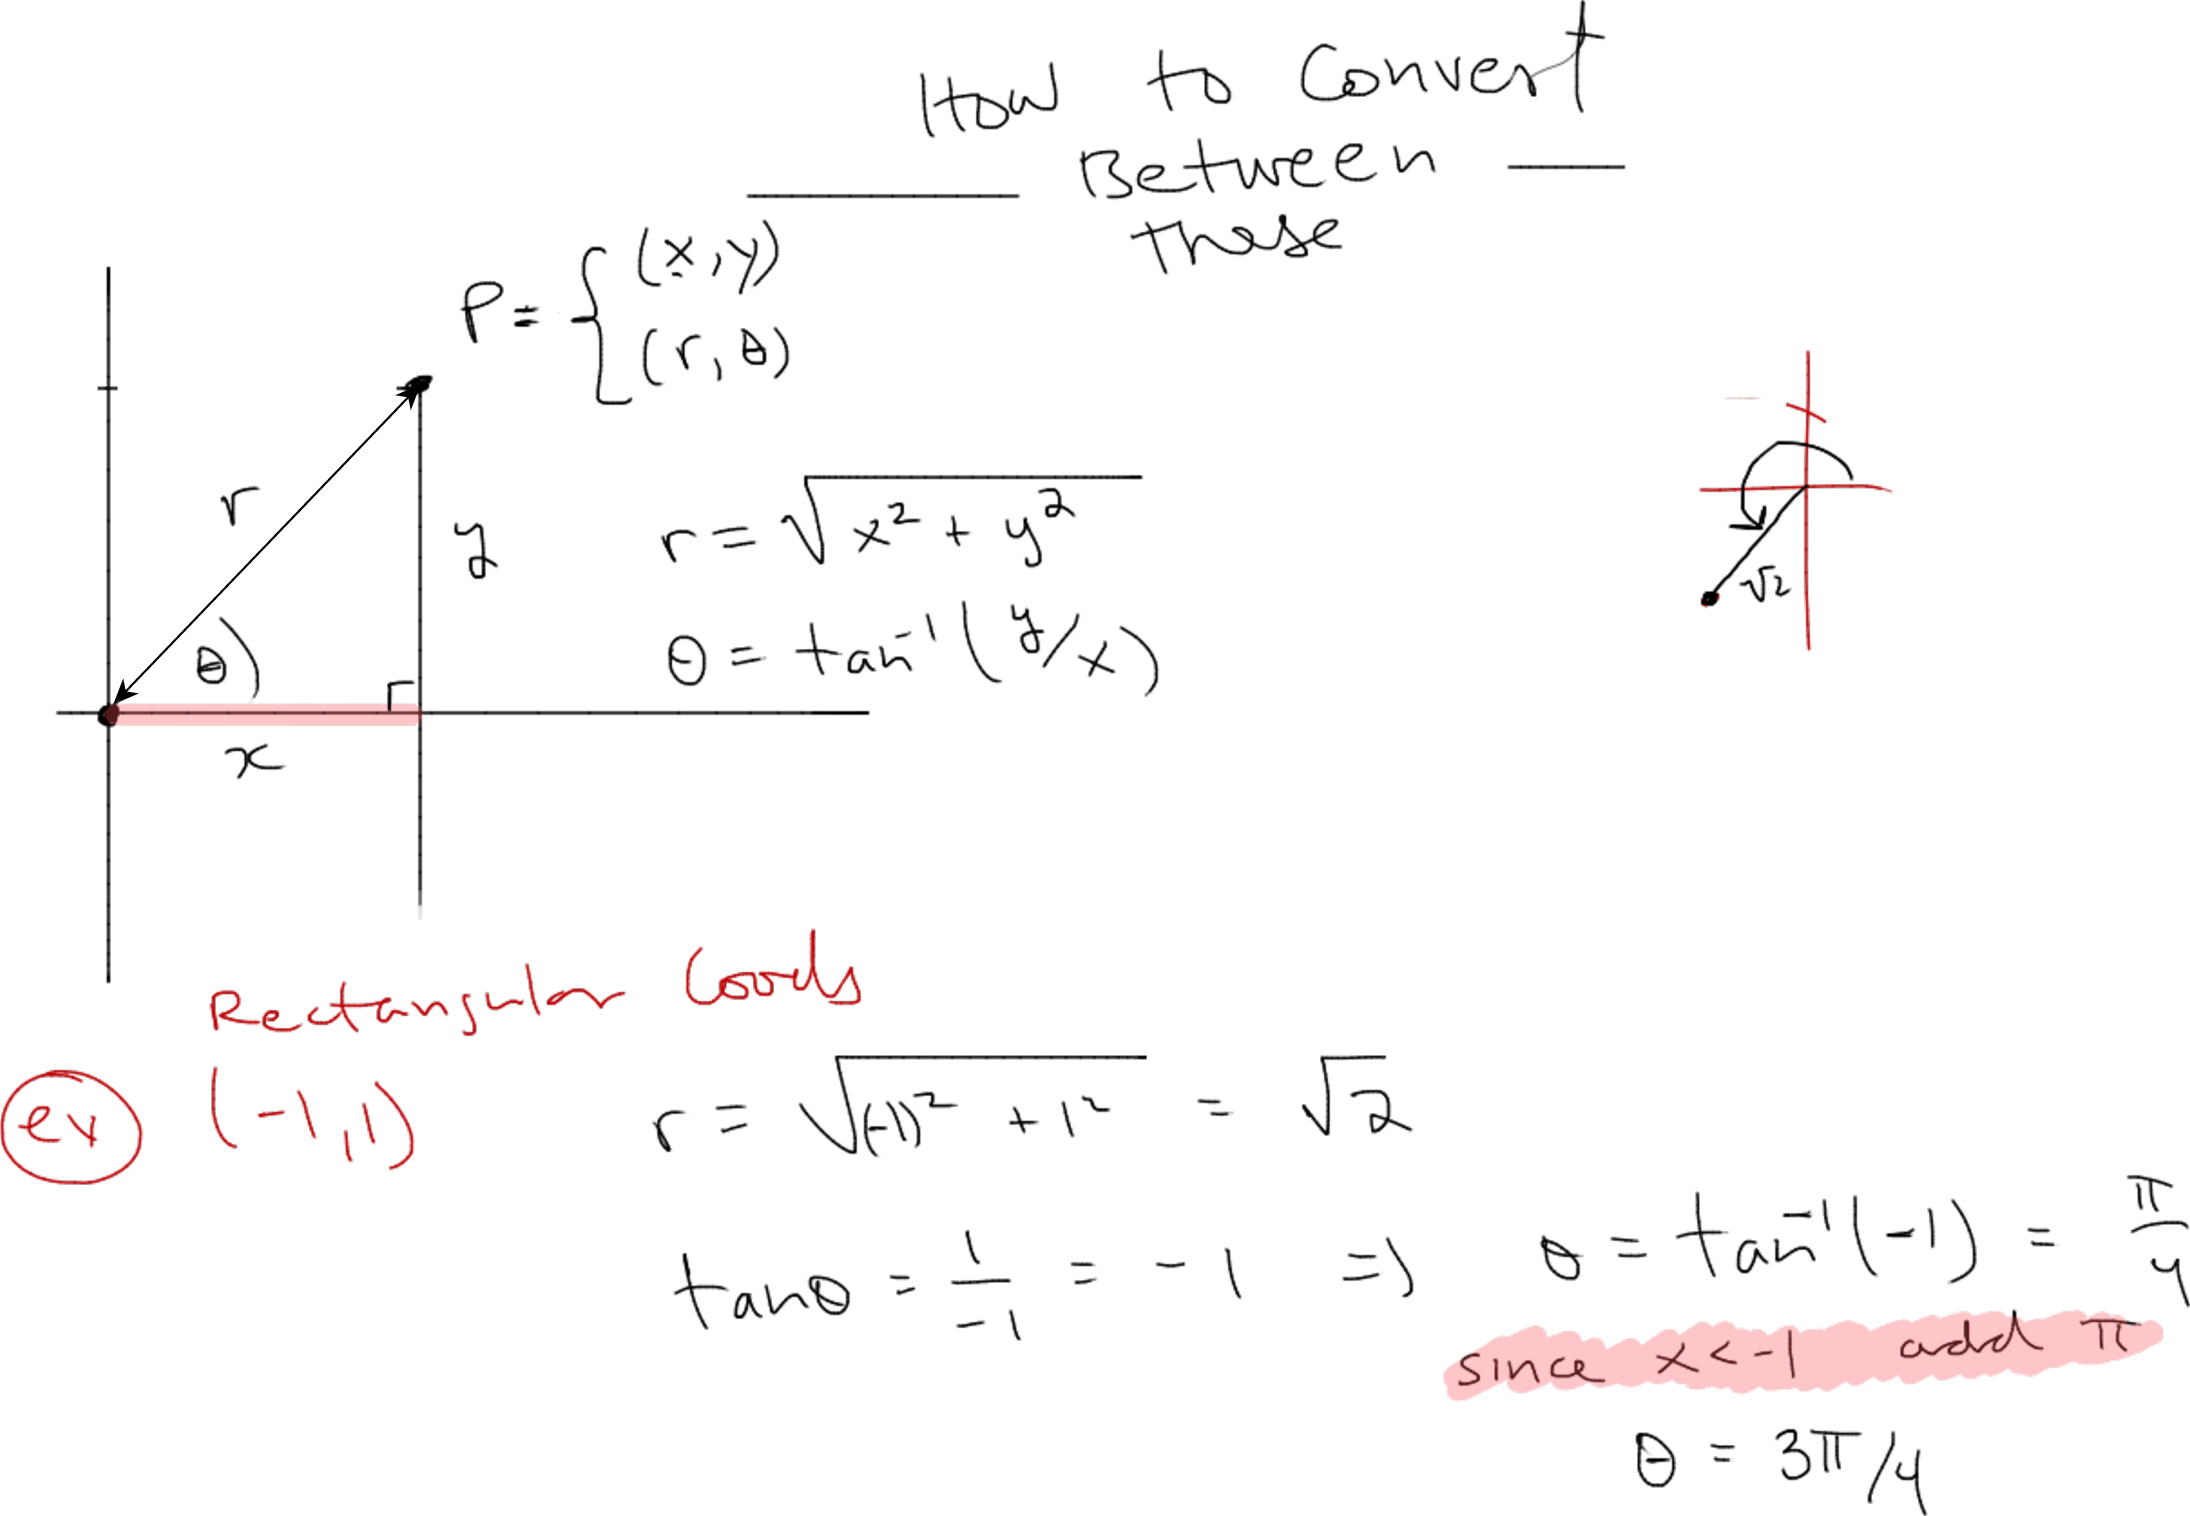 How to Convert
Between
these
P = { (x, y)
(r, θ)
r
y
θ
x
r = √x² + y²
θ = tan⁻¹(y/x)
√2
Rectangular Coords
ex (-1, 1)
r = √(-1)² + 1² = √2
tanθ = 1/-1 = -1 => θ = tan⁻¹(-1) = π/4
since x < -1 add π
θ = 3π/4